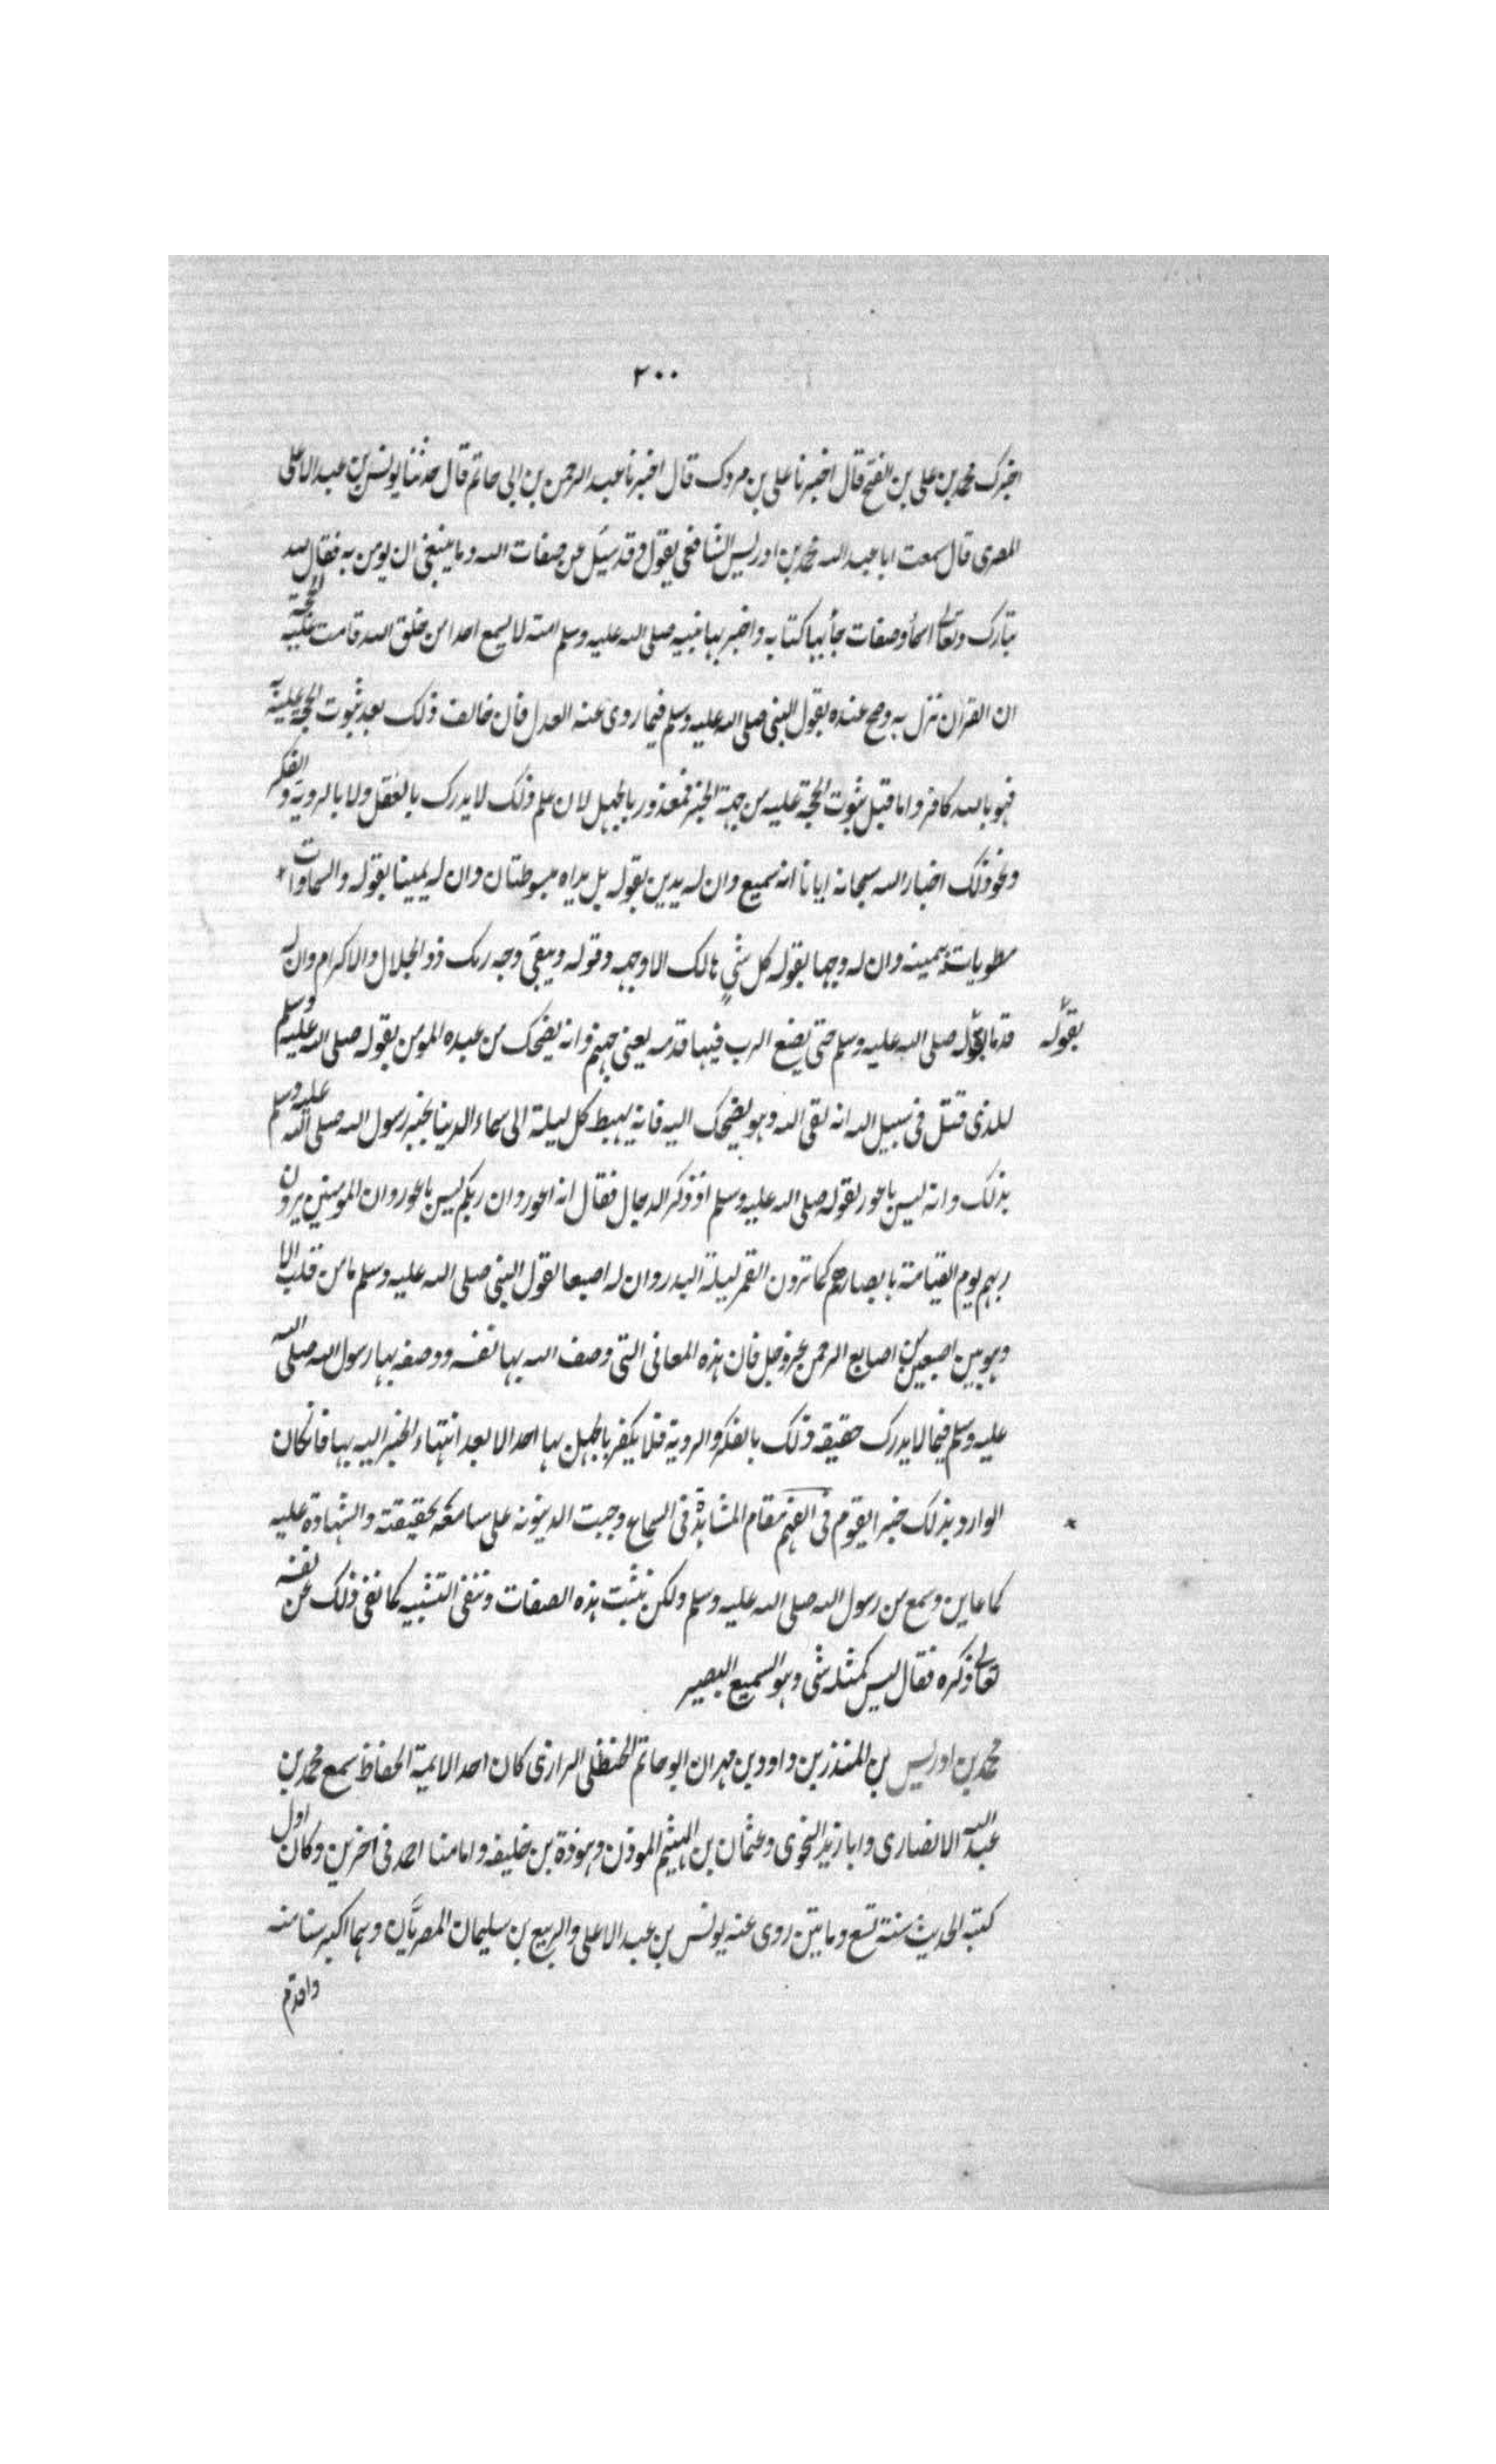 ٢٠٠
اخبرك محمد بن على بن الفتح قال اخبرنا على بن مردك قال اخبرنا عبد الرحمن بن ابى حاتم قال حدثنا يونس بن عبد الاعلى
المصرى قال سمعت ابا عبد الله محمد بن ادريس الشافعى يقول وقد سئل عن صفات الله وما ينبغى ان يومن به فقال لله
تبارك وتعالى اسمأ وصفات جأ بها كتابه واخبر بها نبيه صلى الله عليه وسلم امته لا يسمع احدا من خلق الله قامت عليه الحجة
ان القرآن نزل به وصح عنده بقول النبى صلى الله عليه وسلم فيما روى عنه العدل فان خالف ذلك بعد ثبوت الحجة عليه
فهو بالله كافر واما قبل ثبوت الحجة عليه من جهة الخبر فمعذور بالجهل لان علم ذلك لا يدرك بالعقل ولا بالروية والفكر
ونحو ذلك اخبار الله سبحانه ايانا انه سميع وان له يدين بقوله بل يداه مبسوطتان وان له يمينا بقوله والسماوات
مطويات بيمينه وان له وجها بقوله كل شئ هالك الا وجهه وقوله ويبقى وجه ربك ذو الجلال والاكرام وان له
بقوله
قدما بقوله صلى الله عليه وسلم حتى يضع الرب فيها قدمه يعنى جهنم وانه يضحك من عبده المومن بقوله صلى الله عليه وسلم
للذى قتل فى سبيل الله انه لقى الله وهو يضحك اليه فانه يهبط كل ليلة الى سماء الدينا بخبر رسول الله صلى الله عليه وسلم
بذلك وانه ليس باعور بقوله صلى الله عليه وسلم اذ ذكر الدجال فقال انه اعور وان ربكم ليس باعور وان المومنين يرون
ربهم يوم القيامة بابصارهم كما ترون القمر ليلة البدر وان له اصبعا بقول النبى صلى الله عليه وسلم ما من قلب الا
وهو بين اصبعين من اصابع الرحمن عز وجل فان هذه المعانى التى وصف الله بها نفسه ووصفه بها رسول الله صلى الله
عليه وسلم فيما لا يدرك حقيقة ذلك بالفكر والروية فلا يكفر بالجهل بها احد الا بعد انتهاء الخبر اليه بها فانكان
الوارد بذلك خبرا يقوم فى الفهم مقام المشاهدة فى السماع وجبت الدينونة على سامعه بحقيقته والشهادة عليه
كما عاين وسمع من رسول الله صلى الله عليه وسلم ولكن نثبت هذه الصفات وننفى التشبيه كما نفى ذلك عن نفسه
تعالى ذكره فقال ليس كمثله شى وهو السميع البصير
محمد بن ادريس بن المنذر بن داود بن مهران ابو حاتم الحنظلى الرازى كان احد الايمة الحفاظ سمع محمد بن
عبد الله الانصارى وابا زيد النحوى وعثمان بن الهيثم الموذن وهوذة بن خليفه وامامنا احمد فى اخرين وكان اول
كتبه الحديث سنة تسع ومايتين روى عنه يونس بن عبد الاعلى والربيع بن سليمان المصريَّان وهما اكبر سنا منه
واقدم